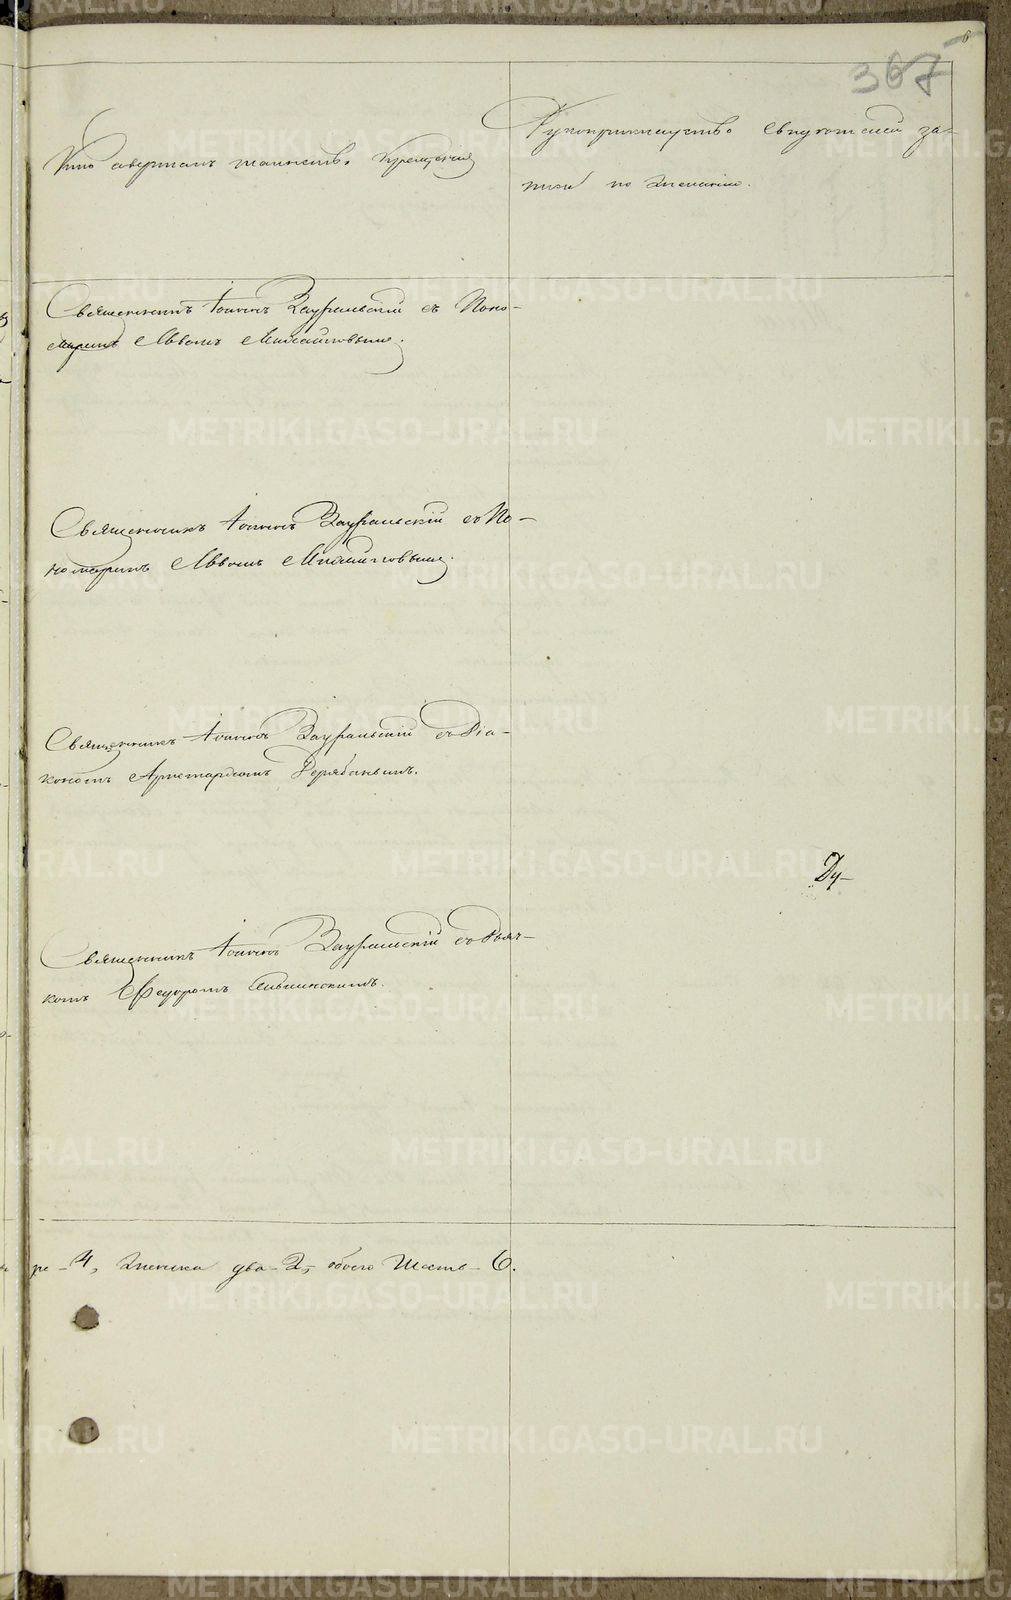 6
367
Кто совершалъ таинство крещенія
Рукоприкладство свидѣтелей за-
писи по желанію.
Священникъ Іоаннъ Зауральскій съ Поно-
маремъ Львомъ
Священникъ Іоаннъ Зауральскій съ По-
номаремъ Львомъ
Священникъ Іоаннъ Зауральскій съ Діа-
кономъ Аристархомъ Дерябинымъ.
Ду-
Священникъ Іоаннъ Зауральскій съ Дьяч-
комъ Ѳедоромъ
ре - 4, женска два - 2, обоего шесть - 6.
METRIKI.GASO-URAL.RU